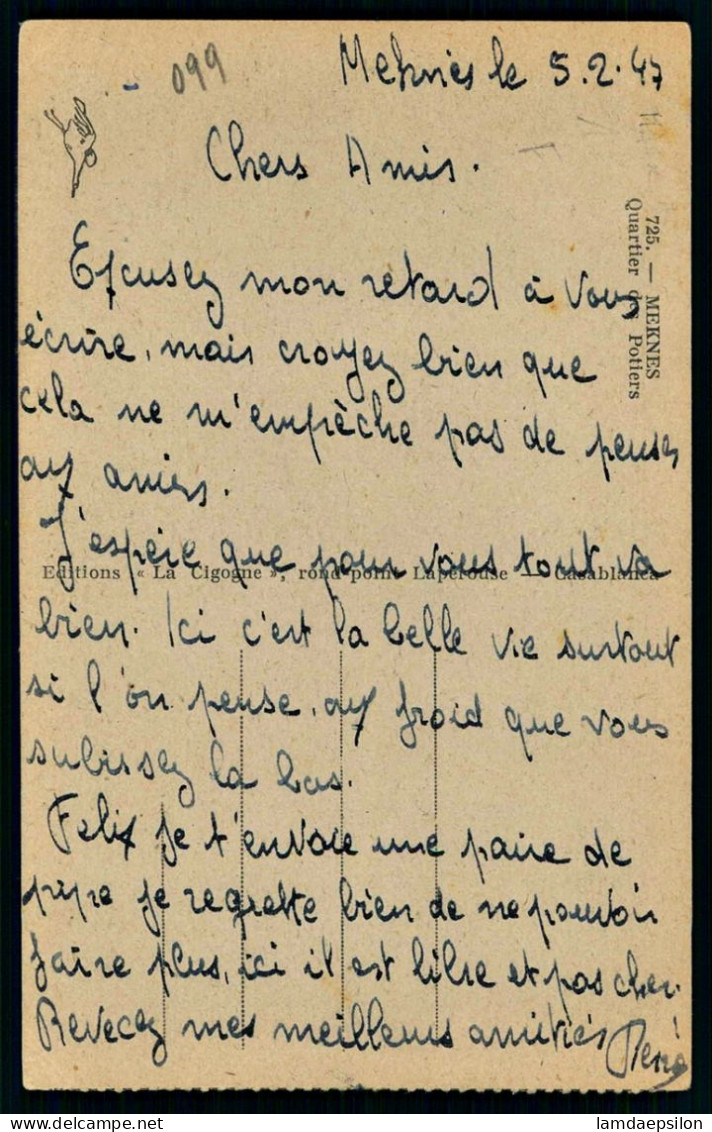 099
Meknès le 5.2.47
Chers Amis.
725. — MEKNES
Quartier des Potiers
Excusez mon retard à vous
écrire, mais croyez bien que
cela ne m'empèche pas de penser
aux amis.
J'espère que pour vous tout va
Editions « La Cigogne », rond-point Lapérouse — Casablanca
bien. Ici c'est la belle vie surtout
si l'on pense, aux froid que vous
subissez la bas.
Felix je t'envoie une paire de
pipe je regrette bien de ne pouvoir
faire plus, ici il est libre et pas cher.
Recevez mes meilleurs amitiés René
lamdaepsilon